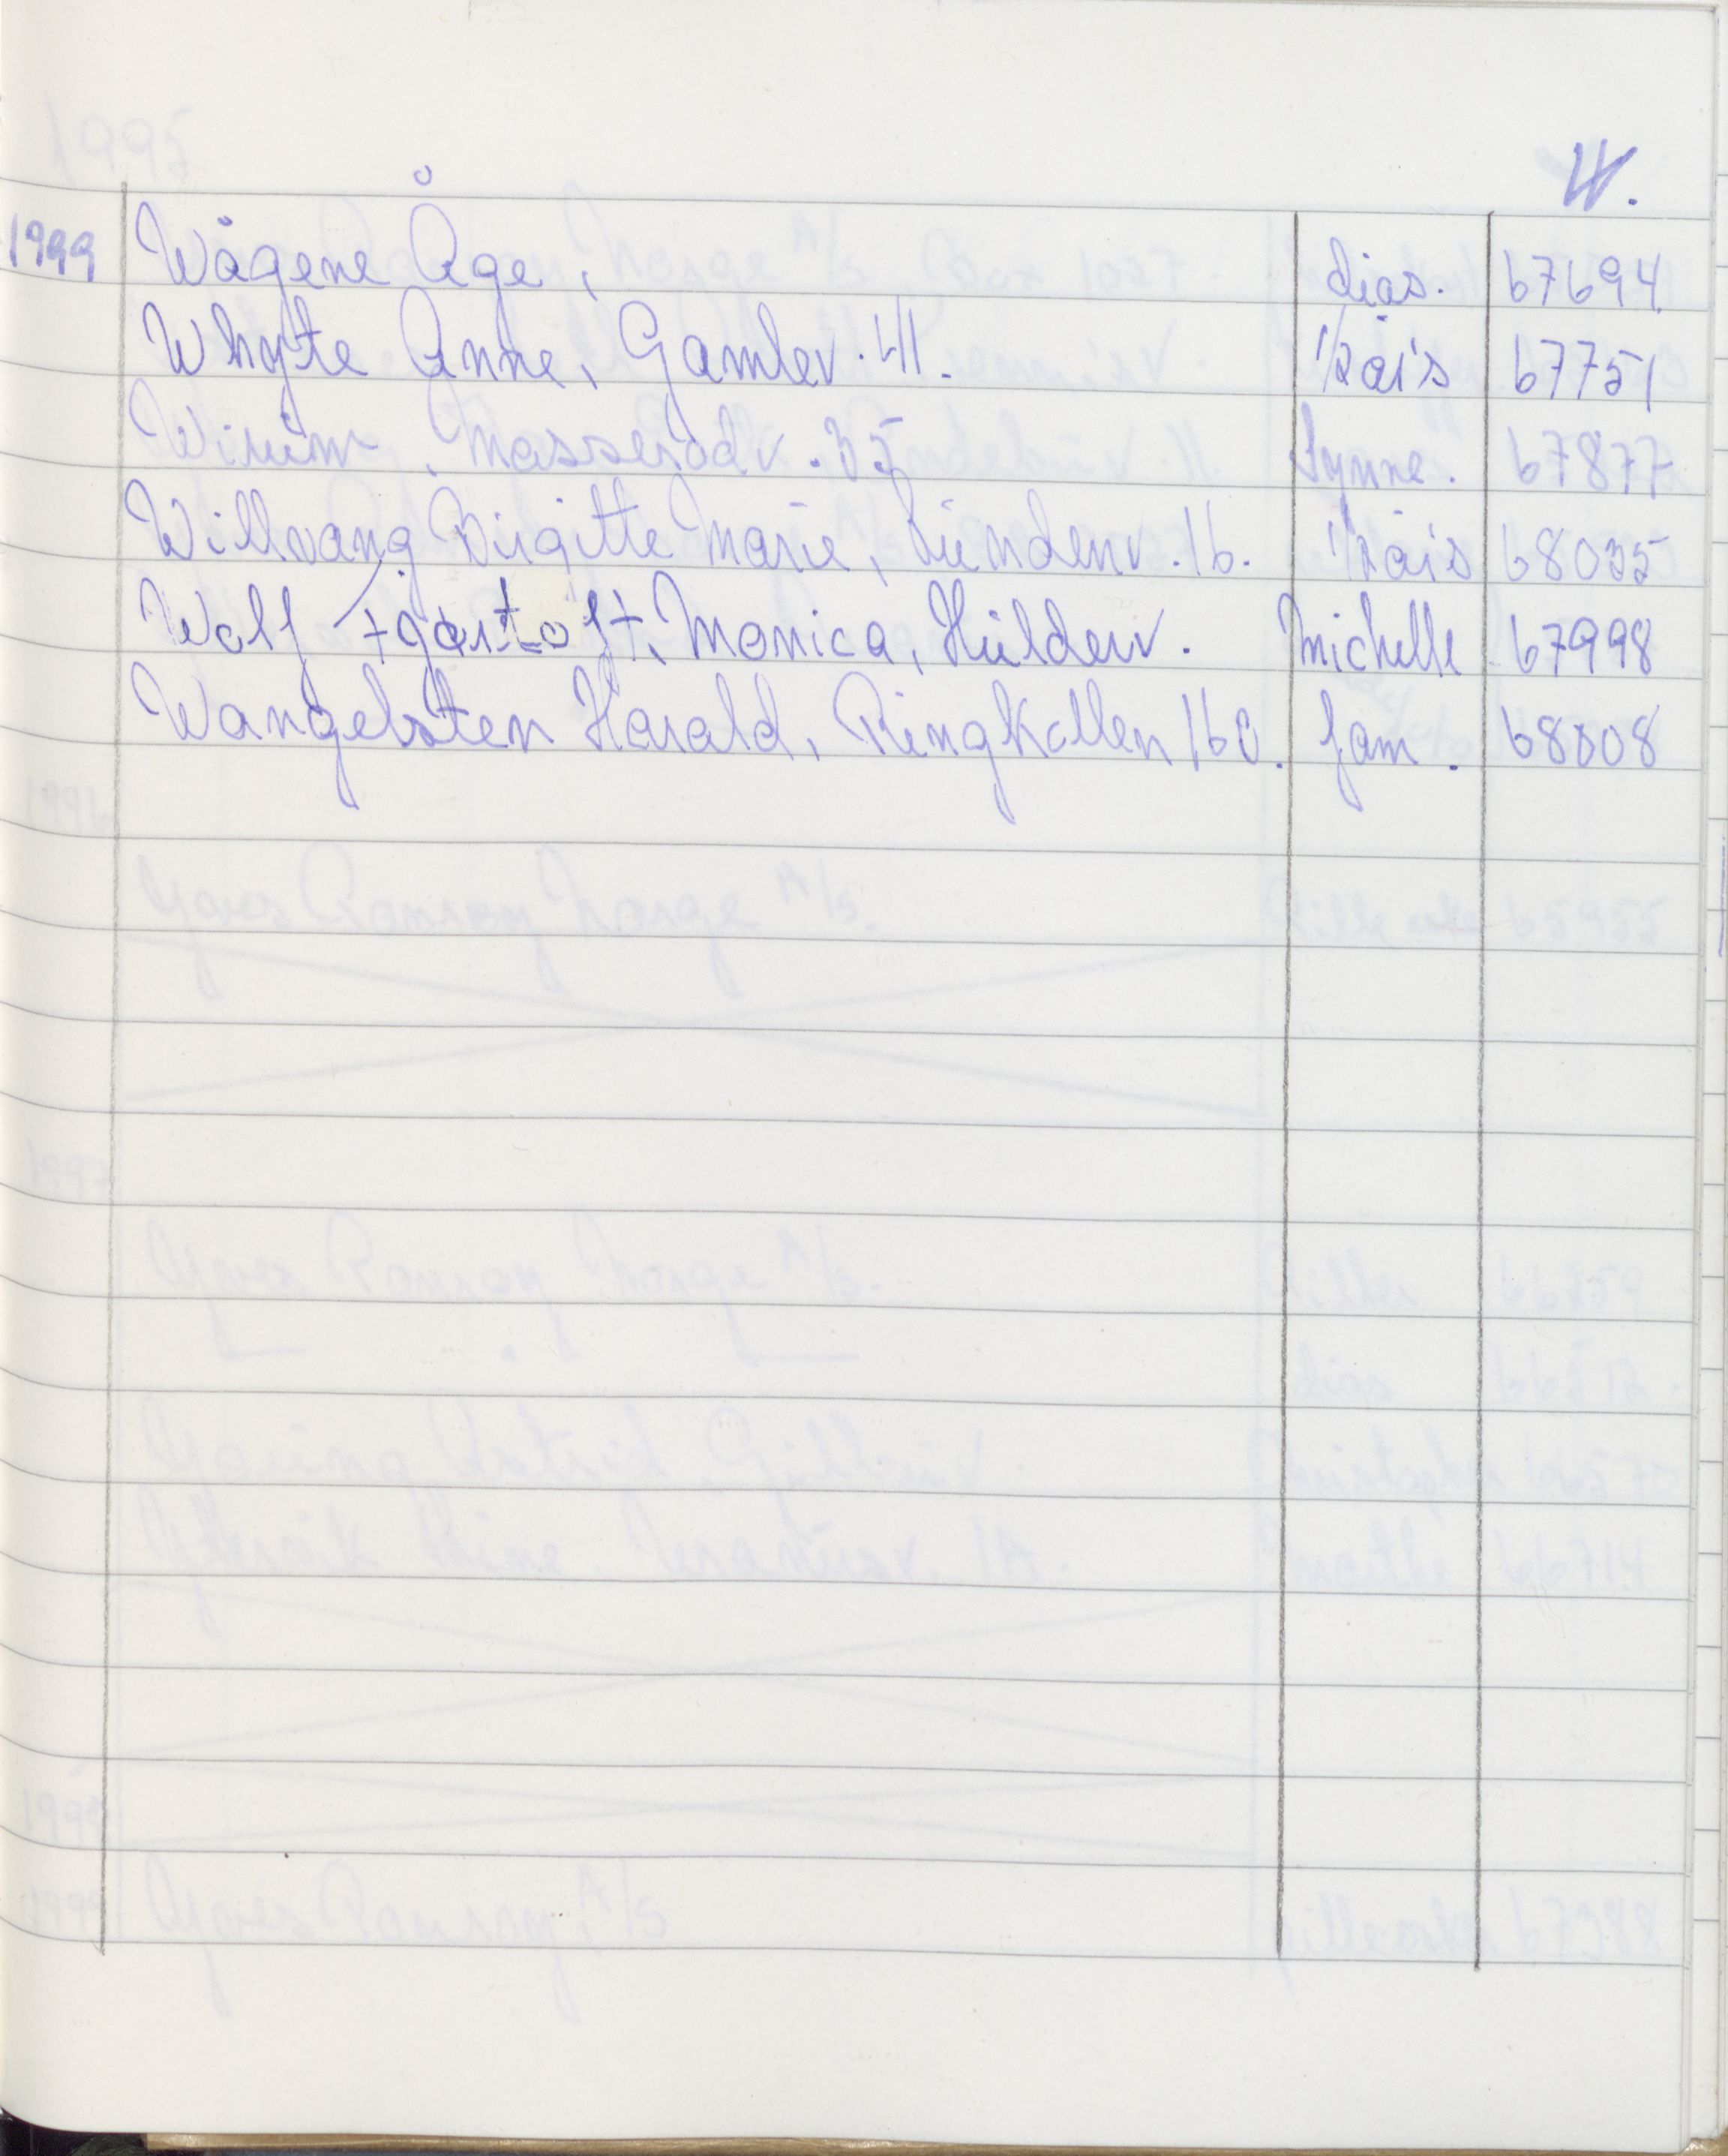 W.
1999 Wågene Åge, dias. 67694
Whyte Anne, Gamlev. 41. 1/2 åis 67751
Wirum, Masserødv. 35 Synne. 67877
Willvang Birgitte Marie, Lundenv. 16. 1/2 åis 68035
Wolf Fgærtoft, Monica, Hulderv. Michelle 67998
Wangelsten Harald, Ringkollen 160. fam. 68008